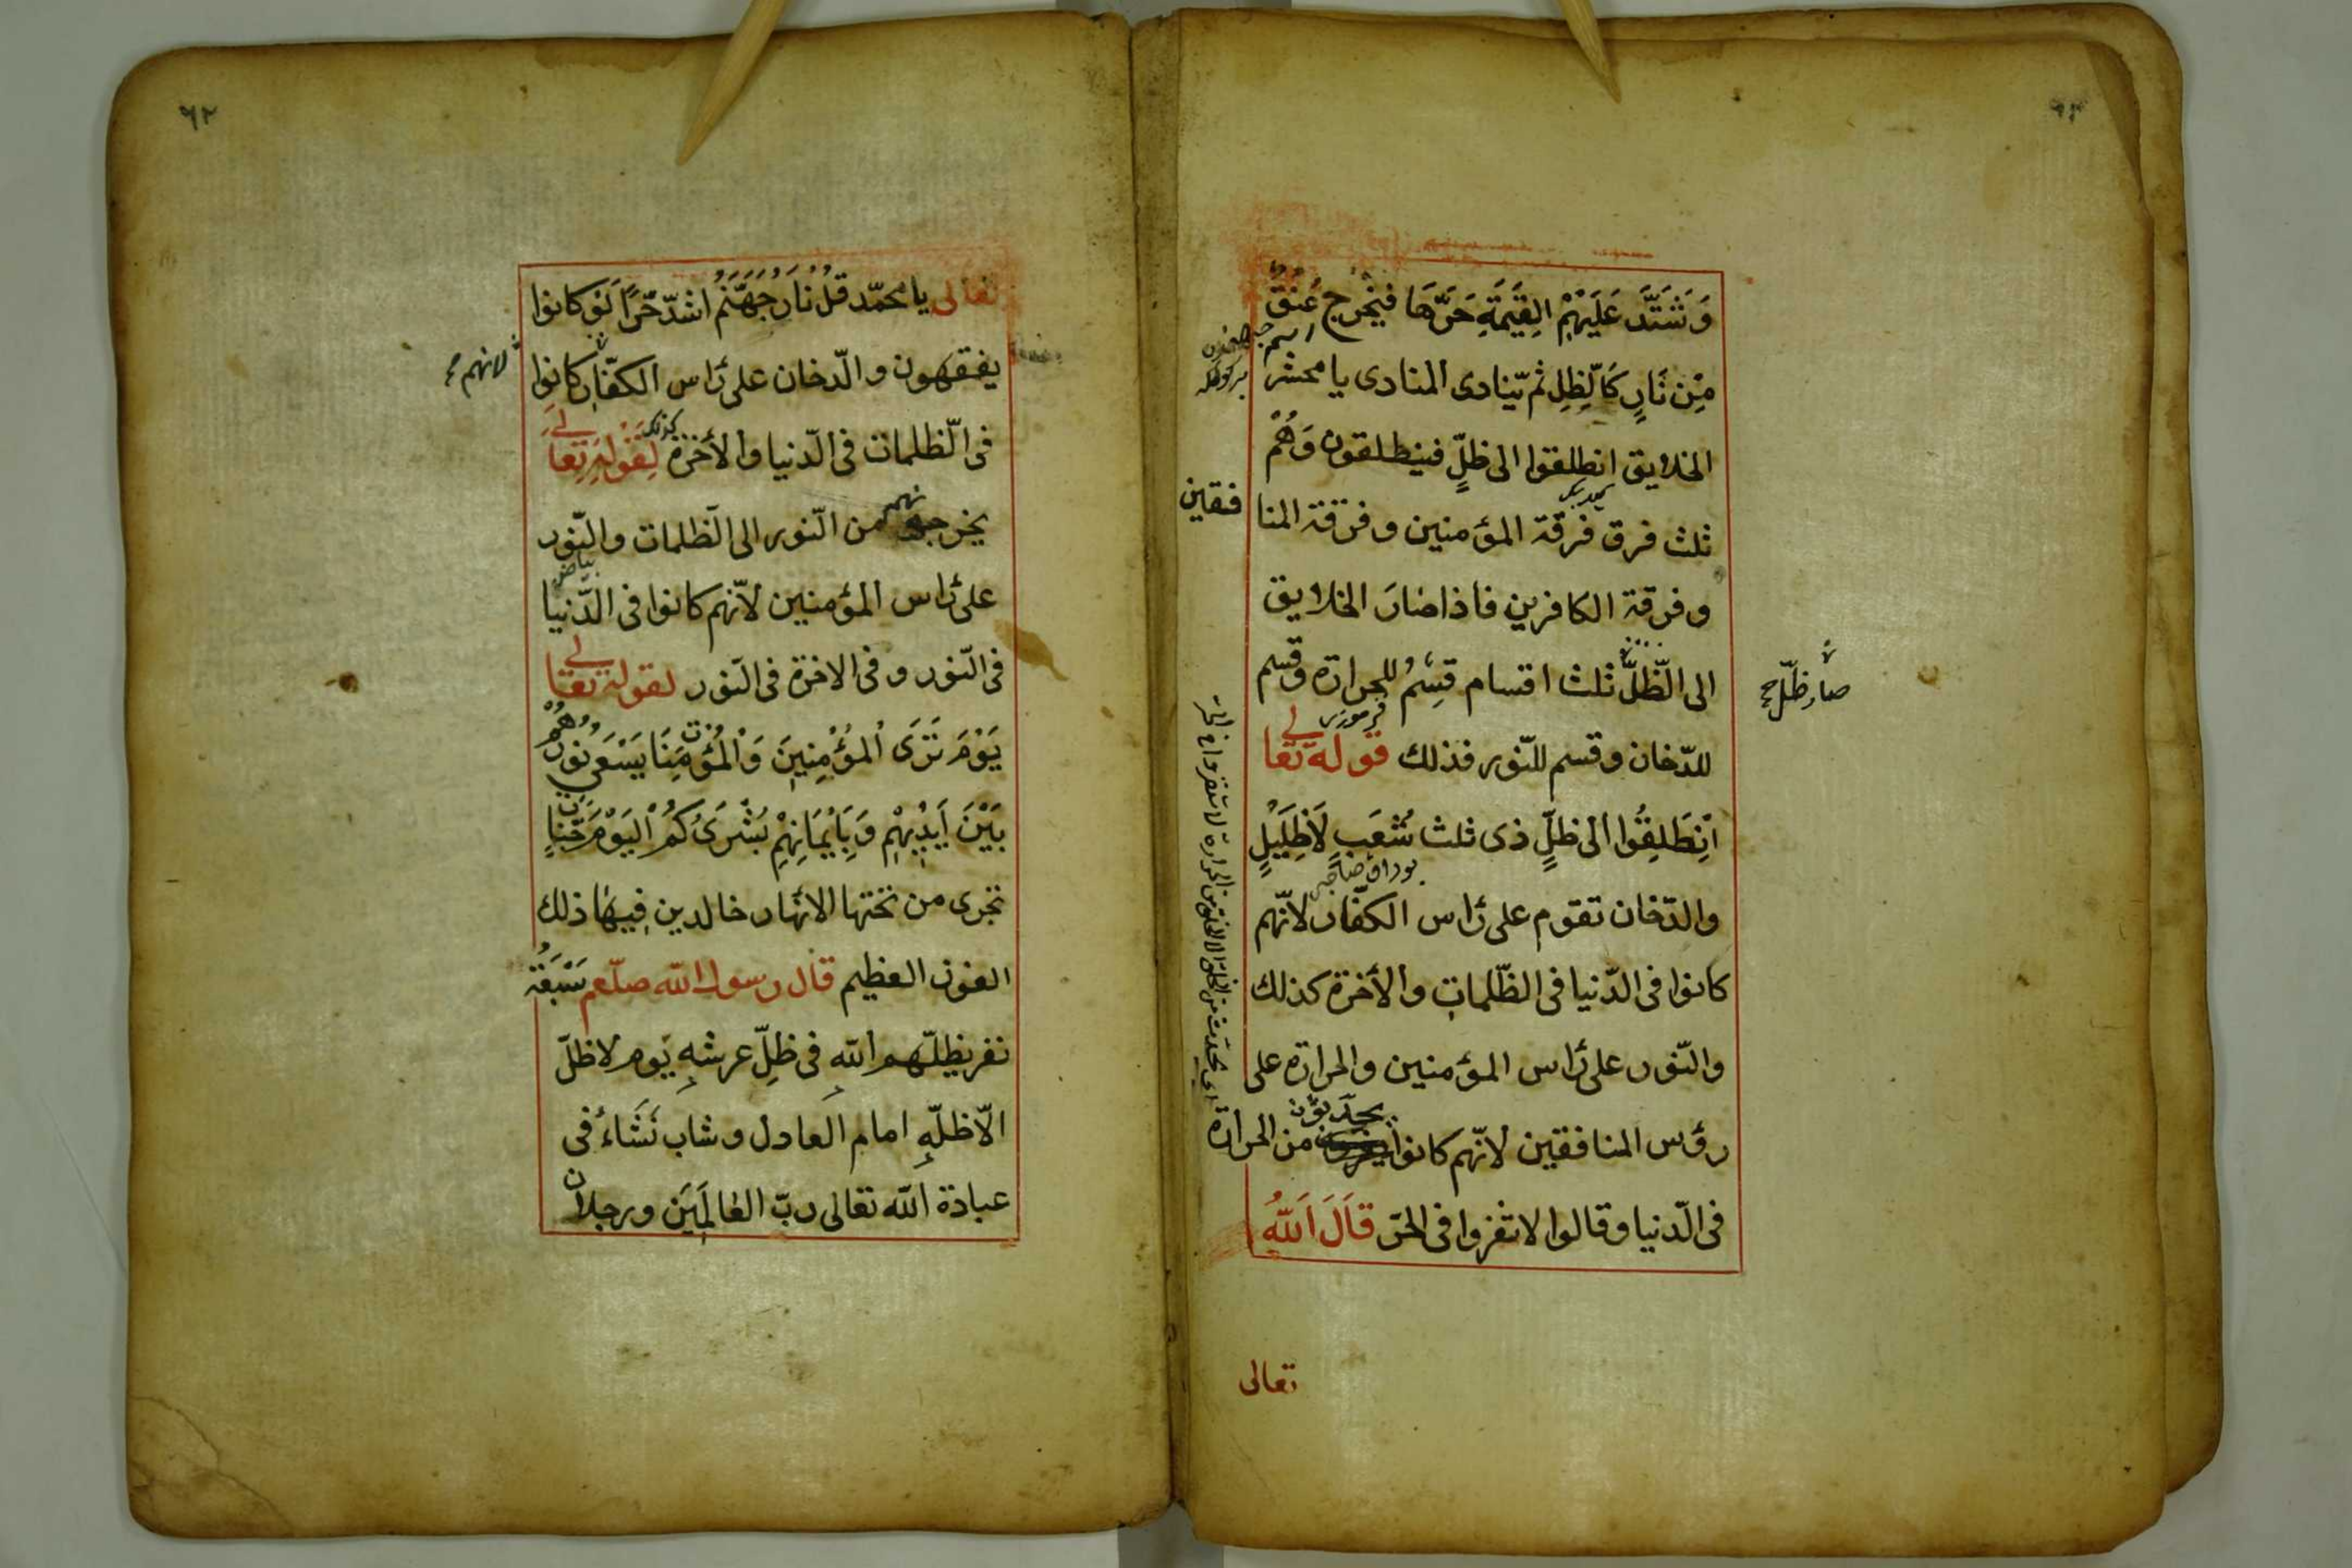 وَشَتَّدَ عَلَيْهِمْ الِقيَمَةِ حَرَّهَا فيَخْرج عُنقٌ
مِنْ نَارٍ كَالّظِلِ ثم يّنادى المنادى يا محشر
الخلايق انطلقوا الى ظلٍّ فينطلقون وَهُمْ
ثلث فرق فرقة المؤمنين وفرقة المنا
فقين
وفرقة الكافرين فاذا ضارَ الخلايق
الى الظّلّ ثلث اقسام قِسِمُ للحرارة وقسم
صار ظلّ صح
للدّخان وقسم للنّور فذلك قوله تعالى
اَنِطَلِقُوا الى ظلٍّ ذى ثلث شُعَبٍ لَاظَلِيْلٍ
والدّخان تقوم على رٔاس الكفّار لانّهم
كانوا فى الدّنيا فى الظّلمات والأخرة كذلك
والنّور على رٔاس المؤمنين والحرارة على
رؤس المنافقين لانّهم كانوا من الحرارة
فى الدّنيا وقالوا لا تنفروا فى الحَرّ قَالَ اَللّٰهُ
تعالى
٦٢
تعالى يا محمّد قلْ نَارُ جَهَنَّمُ اشدّ حَرًّا لَوْ كانوا
يفقهون والدّخان على رٔاس الكفّار كانوا
لانهم صح
فى الّظلمات فى الدّنيا والأخرة لِقَوْلِهِ تَعَالى
يخرجونهم من النّور الى الظلمات والنّور
على رٔاس المؤمنين لانّهم كانوا فى الدّنيا
فى النّور وفى الاخرة فى النّور لقوله تعالى
يَوْمَ تَرَى اْلمُؤْمِنِينَ وَاْلمُؤمِنَات يَسْعَى نُورُهُمْ
بَيْنَ اَيْدِيْهِمْ وَبِاَيْمَانِهِمْ بُشْرَىكُمُ الْيَوْمَ جَنّاتٌ
تجرى من تحتها الانهار خالدين فِيهَا ذلك
الفوز العظيم قال رسول اللّه صلّعم سَبْعَةُ
نفر يظلّهم اللّٰهِ فى ظلِّ عرشهِ يَوم لا ظلّ
الّا ظلّهِ امام العادل وشاب نَشَاءُ فى
عبادة اللّه تعالى ربّ العَالَمِيَن ورجلان